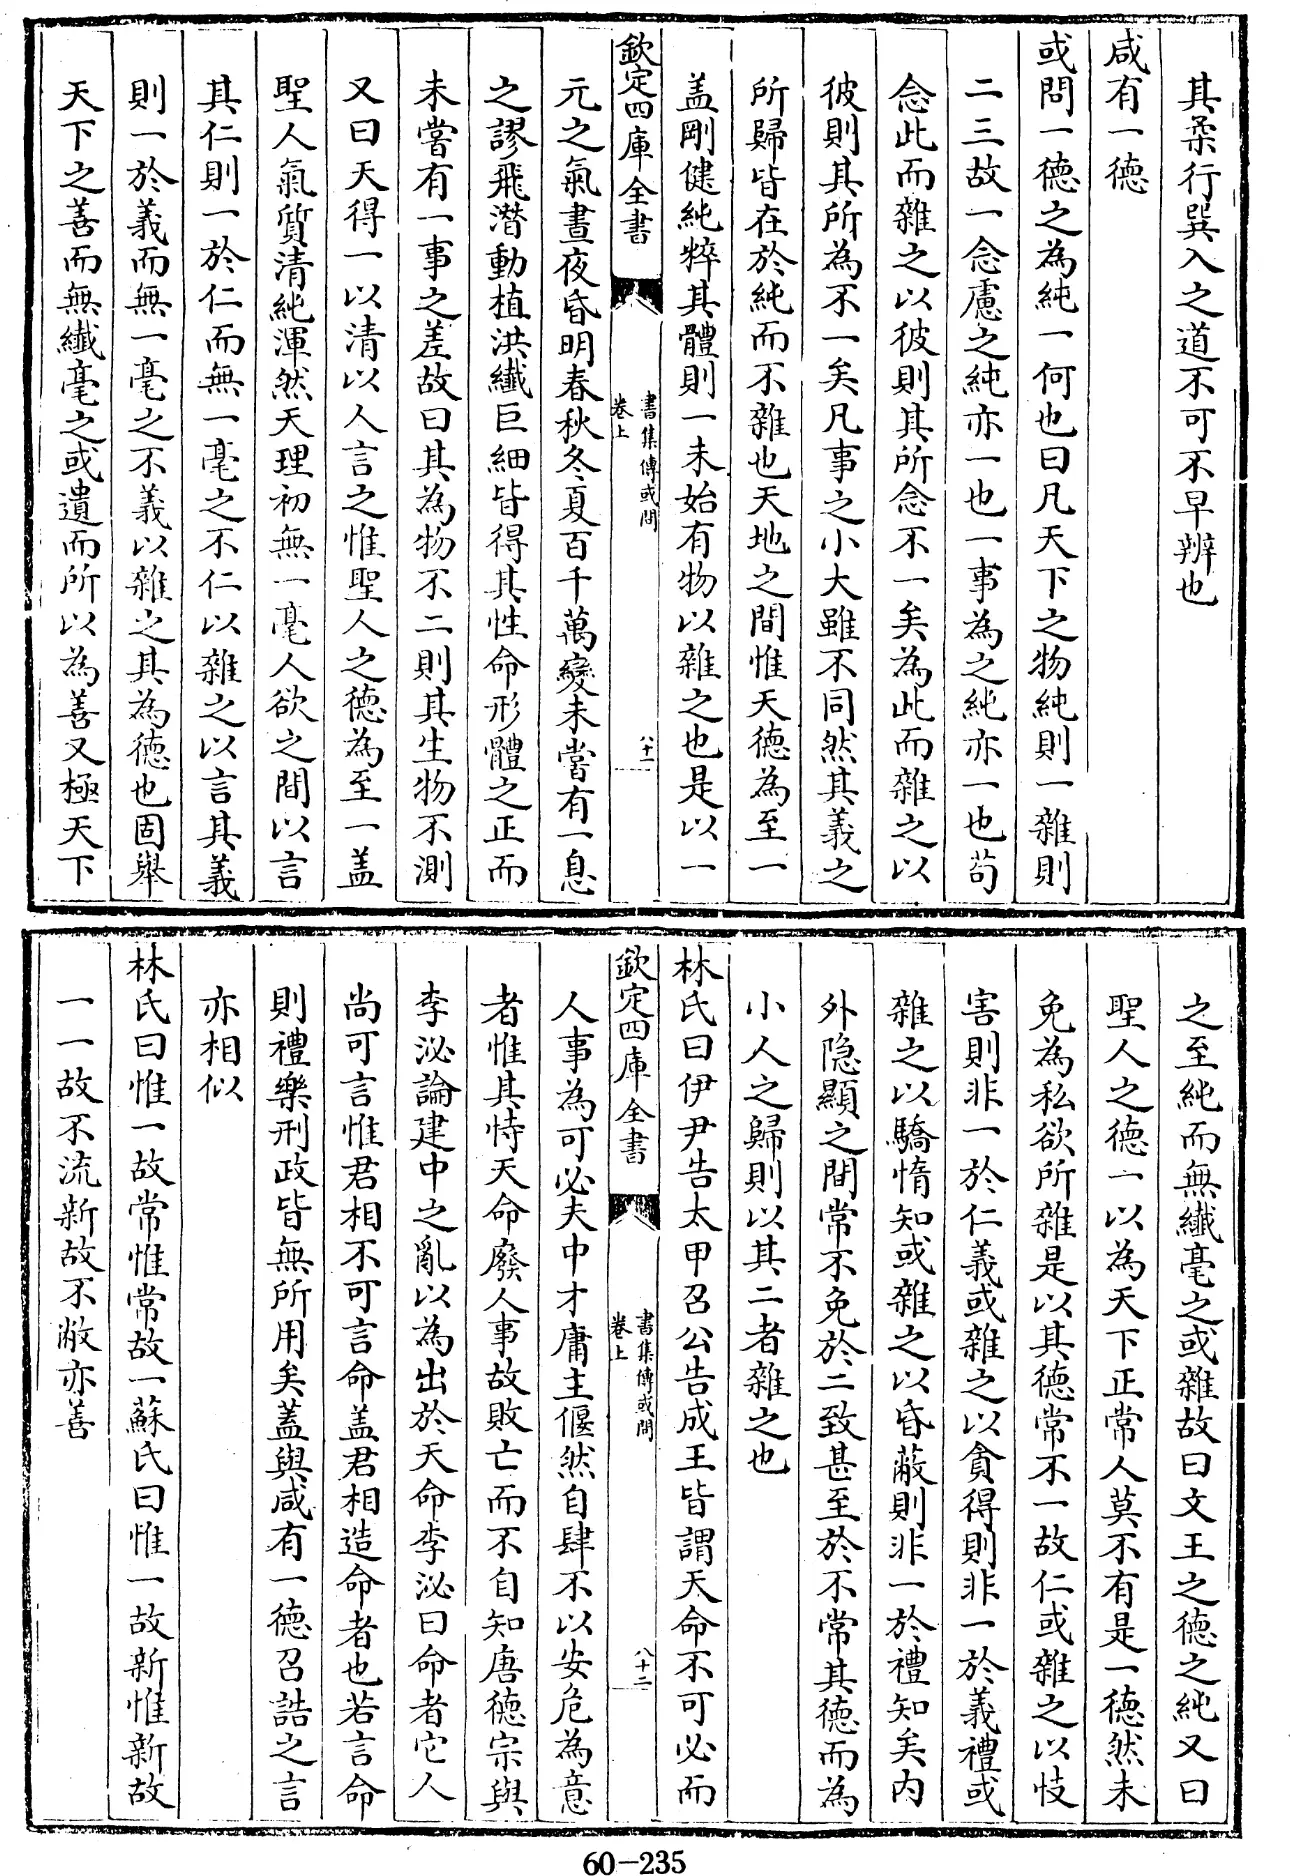 其柔行巽入之道不可不早辨也
咸有一德
或問一德之為純一何也曰凡天下之物純則一雜則
二三故一念慮之純亦一也一事為之純亦一也苟
念此而雜之以彼則其所念不一矣為此而雜之以
彼則其所為不一矣凡事之小大雖不同然其義之
所歸皆在於純而不雜也天地之間惟天德為至一
盖剛健純粹其體則一未始有物以雜之也是以一
欽定四庫全書
書集傳或問
卷上
八十一
元之氣晝夜昏明春秋冬夏百千萬變未嘗有一息
之謬飛潛動植洪纎巨細皆得其性命形體之正而
未嘗有一事之差故曰其為物不二則其生物不測
又曰天得一以清以人言之惟聖人之德為至一盖
聖人氣質清純渾然天理初無一毫人欲之間以言
其仁則一於仁而無一毫之不仁以雜之以言其義
則一於義而無一毫之不義以雜之其為德也固舉
天下之善而無纎毫之或遺而所以為善又極天下
之至純而無纎毫之或雜故曰文王之德之純又曰
聖人之德一以為天下正常人莫不有是一德然未
免為私欲所雜是以其德常不一故仁或雜之以忮
害則非一於仁義或雜之以貪得則非一於義禮或
雜之以驕惰知或雜之以昏蔽則非一於禮知矣内
外隐顯之間常不免於二致甚至於不常其德而為
小人之歸則以其二者雜之也
林氏曰伊尹告太甲召公告成王皆謂天命不可必而
欽定四庫全書
書集傳或問
卷上
八十二
人事為可必夫中才庸主偃然自肆不以安危為意
者惟其恃天命廢人事故敗亡而不自知唐德宗與
李泌論建中之亂以為出於天命李泌曰命者它人
尚可言惟君相不可言命盖君相造命者也若言命
則禮樂刑政皆無所用矣蓋與咸有一德召誥之言
亦相似
林氏曰惟一故常惟常故一蘇氏曰惟一故新惟新故
一一故不流新故不敝亦善
60-235